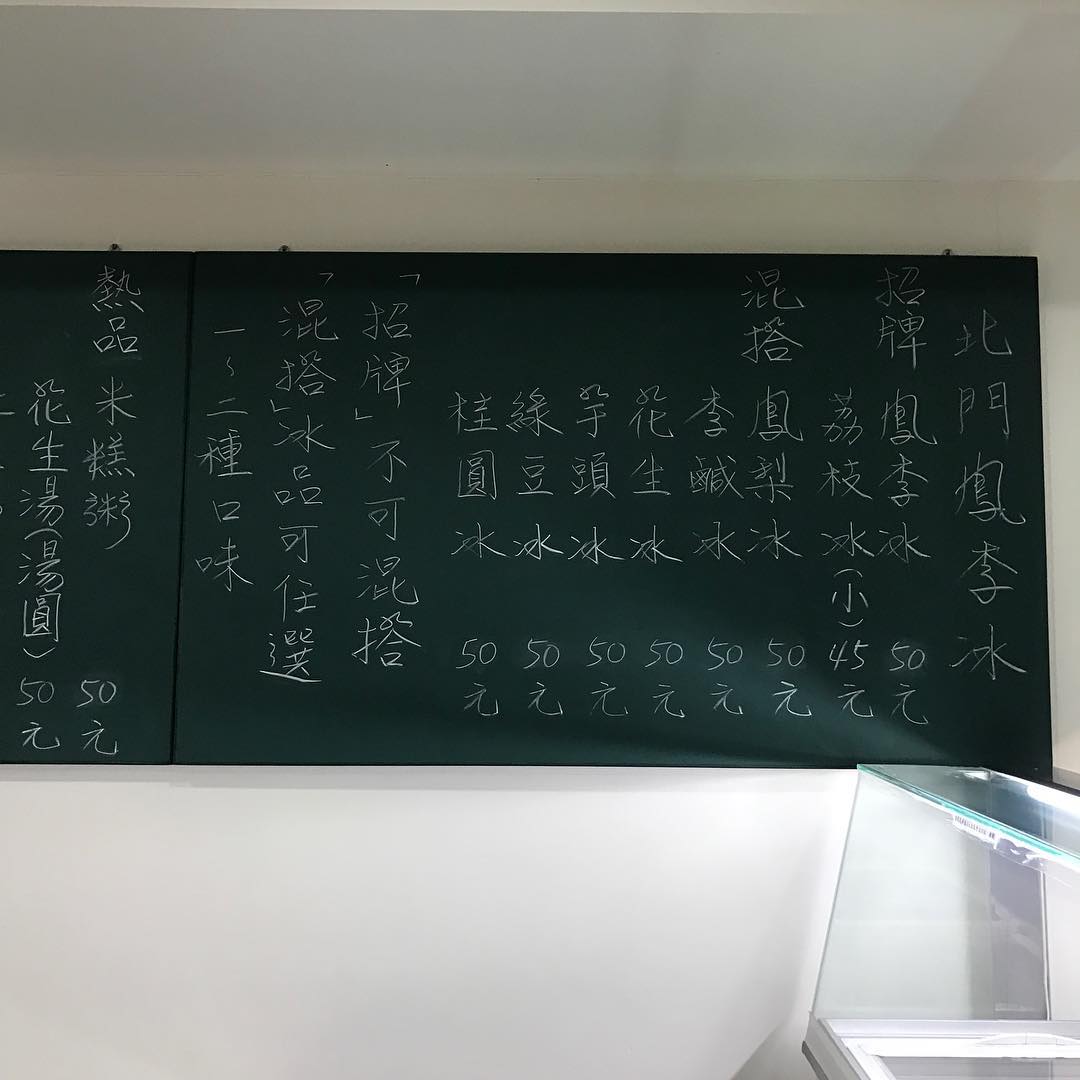 北門鳳李冰
招牌 鳳李冰 50元
荔枝冰(小) 45元
混搭 鳳梨冰 50元
李鹹冰 50元
花生冰 50元
芋頭冰 50元
綠豆冰 50元
桂圓冰 50元
「招牌」不可混搭
「混搭」冰品可任選
一~二種口味
熱品 米糕粥 50元
花生湯(湯圓) 50元